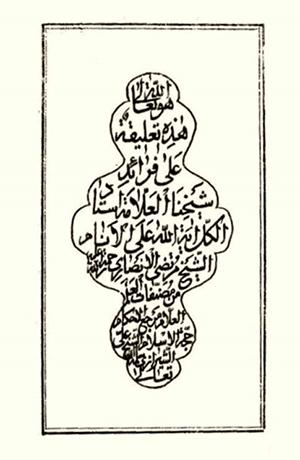 هو الله تعالى
هذه تعليقة
على فرائد
شيخنا العلامة استاد
الكل آية الله على الانام
الشيخ مرتضى الانصاري
من مصنفات العلم
العلامة مرجع
حجة الاسلام
الشيرازي